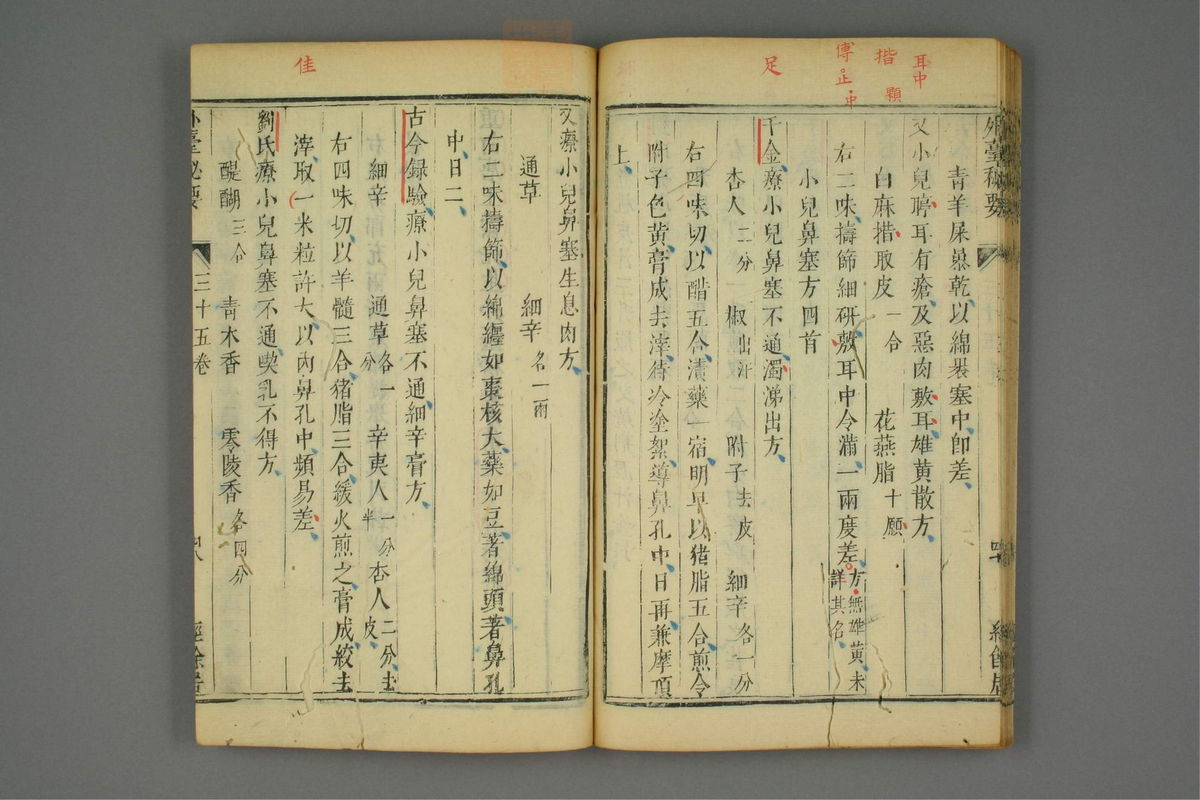 耳中
揩 顆
傅 正 中
足
外臺秘要
青羊屎暴乾以綿裹塞中即差
又小兒聤耳有瘡及惡肉㪍耳雄黃散方
白麻措取皮一合 花燕脂十願
右二味擣篩細研敷耳中令滿一兩度差方無雄黃未詳其名
小兒鼻塞方四首
千金療小兒鼻塞不通濁涕出方
杏人二分 椒出汗 附子去皮 細辛各一分
右四味切以酷五合漬藥一宿明早以猪脂五合煎令
附子色黃膏成去滓待冷塗絮導鼻孔中日再兼摩頂
上
佳
又療小兒鼻塞生息肉方
通草 細辛各一兩
右二味擣篩以綿纏如棗核大藥如豆著綿頭著鼻孔
中日二
古今録驗療小兒鼻塞不通細辛膏方
細辛 通草各一分 辛夷人一分半 杏人二分去皮
右四味切以羊髓三合猪脂三合緩火煎之膏成絞去
滓取一米粒許大以內鼻孔中頻易差
劉氏療小兒鼻塞不通喫乳不得方
醍醐三合 青木香 零陵香各四分
外臺秘要 三十五卷